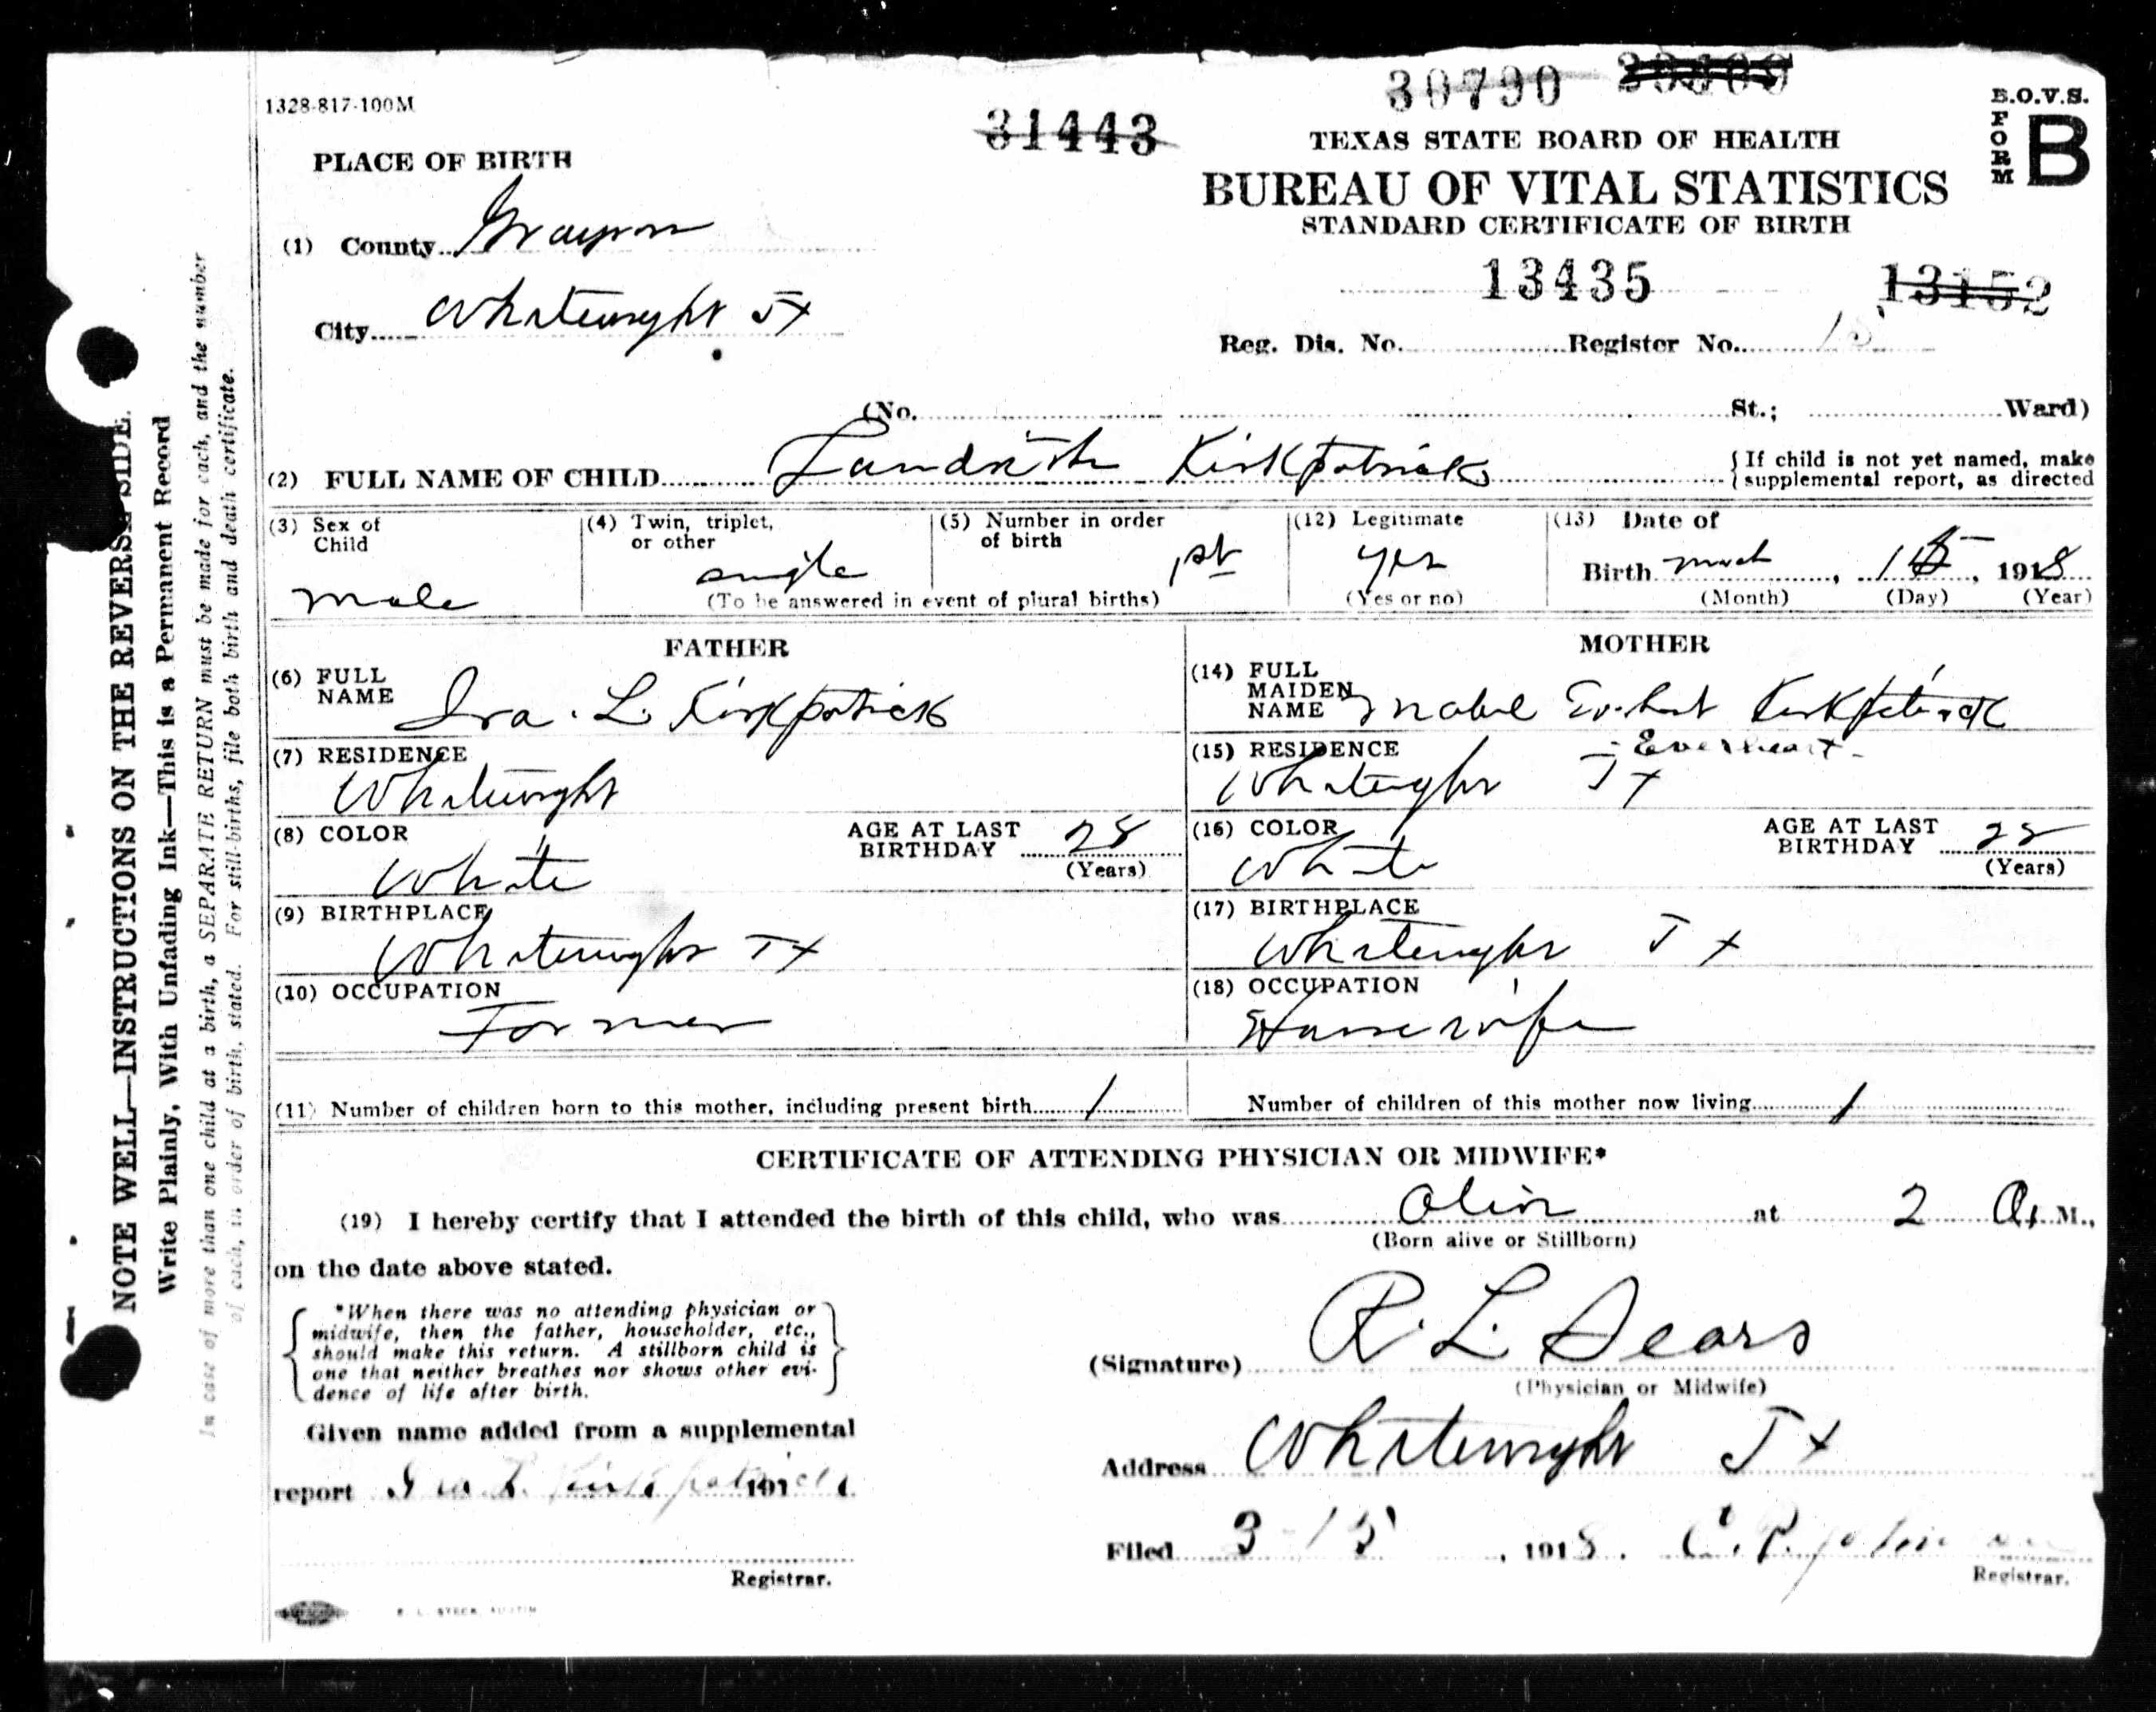 30790 30409
1328-817-100M
31443
B.O.V.S.
FORM B
TEXAS STATE BOARD OF HEALTH
BUREAU OF VITAL STATISTICS
STANDARD CERTIFICATE OF BIRTH
PLACE OF BIRTH
(1) County Grayson
City Whitewright Tx
13435 13152
Reg. Dis. No. Register No.
(No. St.; Ward)
(2) FULL NAME OF CHILD Landrith Kirkpatrick
{If child is not yet named, make
{supplemental report, as directed
(3) Sex of Child
male
(4) Twin, triplet, or other
single
(5) Number in order of birth
1st
(To be answered in event of plural births)
(12) Legitimate
yes
(Yes or no)
(13) Date of
Birth March, 15, 1918
(Month) (Day) (Year)
FATHER
(6) FULL NAME Ira. L. Kirkpatrick
(7) RESIDENCE
Whitewright
(8) COLOR
White
AGE AT LAST BIRTHDAY 28
(Years)
(9) BIRTHPLACE
Whitewright Tx
(10) OCCUPATION
Farmer
MOTHER
(14) FULL MAIDEN NAME Mabel Everhart Kirkpatrick
- Everheart -
(15) RESIDENCE
Whitewright Tx
(16) COLOR
White
AGE AT LAST BIRTHDAY 22
(Years)
(17) BIRTHPLACE
Whitewright Tx
(18) OCCUPATION
Housewife
(11) Number of children born to this mother, including present birth 1
Number of children of this mother now living 1
CERTIFICATE OF ATTENDING PHYSICIAN OR MIDWIFE*
(19) I hereby certify that I attended the birth of this child, who was Alive at 2 A. M.,
(Born alive or Stillborn)
on the date above stated.
*When there was no attending physician or
midwife, then the father, householder, etc.,
should make this return. A stillborn child is
one that neither breathes nor shows other evi-
dence of life after birth.
(Signature) R. L. Sears
(Physician or Midwife)
Given name added from a supplemental
report Ira L. Kirkpatrick 191
Registrar.
Address Whitewright Tx
Filed 3-15, 1918.
Registrar.
NOTE WELL—INSTRUCTIONS ON THE REVERSE SIDE.
Write Plainly, With Unfading Ink—This is a Permanent Record
In case of more than one child at a birth, a SEPARATE RETURN must be made for each, and the number
of each, in order of birth, stated. For still-births, file both birth and death certificate.